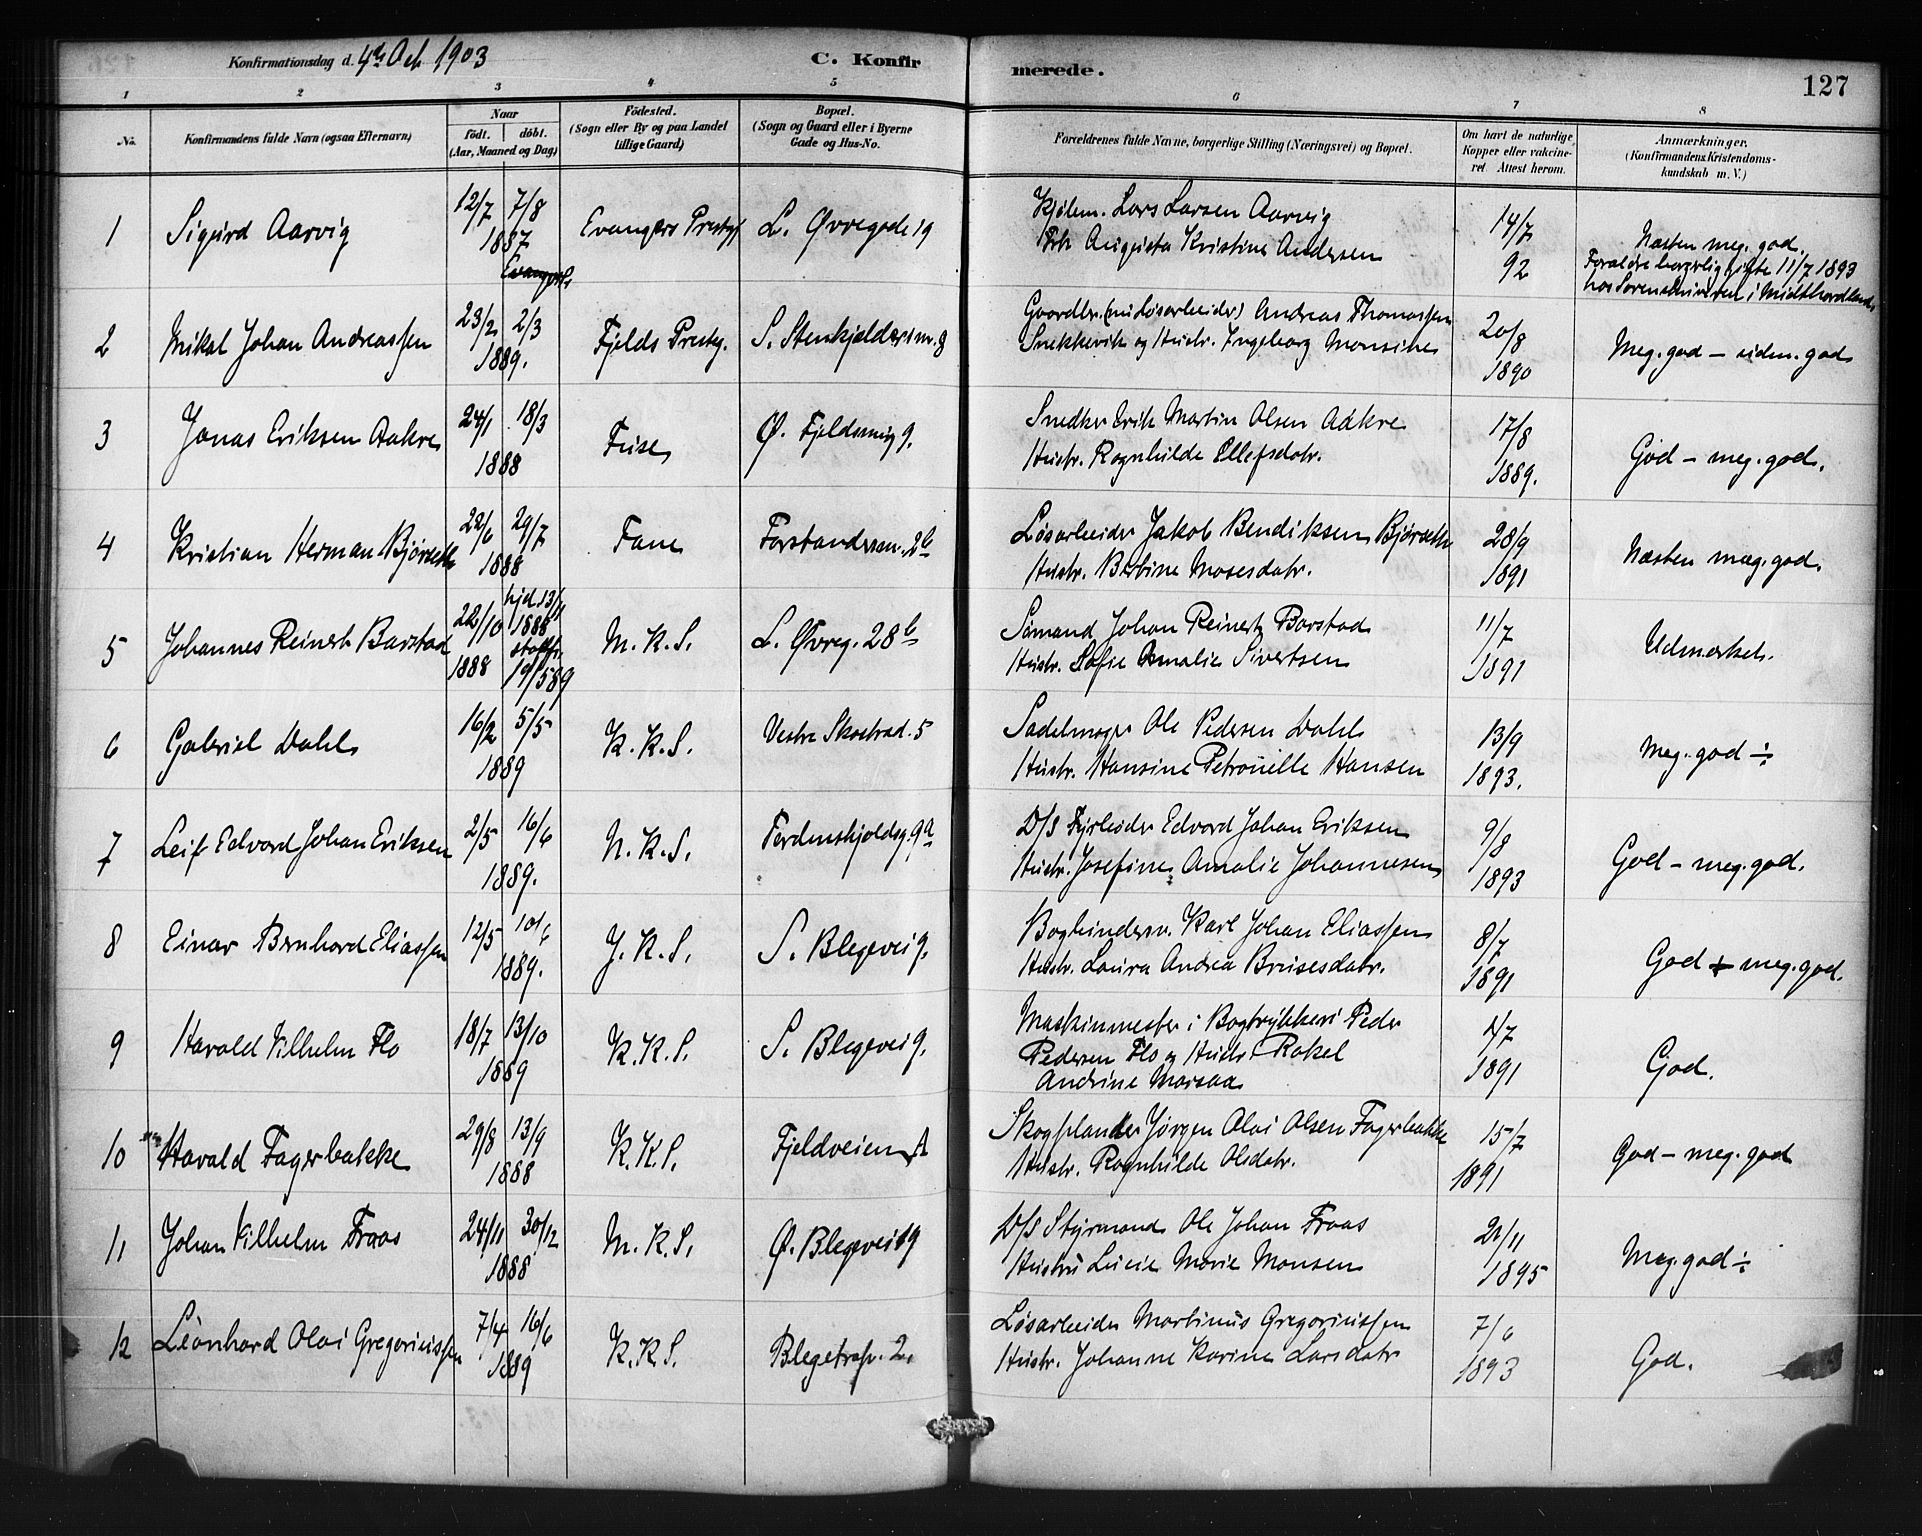 Konfirmationsdag d. 4de Oct. 1903
C. Konfirmerede.
127
1 2 3 4 5 6 7 8
No.
Konfirmandens fulde Navn (ogsaa Efternavn)
Naar
födt. döbt.
(Aar, Maaned og Dag)
Födested.
(Sogn eller By og paa Landet
tillige Gaard)
Bopæl.
(Sogn og Gaard eller i Byerne
Gade og Hus-No.
Forældrenes fulde Navne, borgerlige Stilling (Næringsvei) og Bopæl.
Om havt de naturlige
Kopper eller vakcine-
ret Attest herom.
Anmærkninger.
(Konfirmandens Kristendoms-
kundskab m. V.)
1 Sigurd Aarvig 12/7 7/8 1887 Evangers Prestgj L. Øvregade 19
Kjølem. Lars Larsen Aarvig
Frk Augusta Kristine Andersen
14/7 92
Næsten meg. god.
Forældre borgerlig gifte 11/7 1893
hos Sorenskriveren i Midthordland
2 Mikal Johan Andreassen 23/2 2/3 1889. Fjelds Prestg. S. Stenkjeldersmr. 8
Gaardbr. (nu løsarbeider) Andreas Thomassen
Snekkevik og Hustr. Ingeborg Monsine
20/8 1890
Meg. god – udm. god
3 Jonas Eriksen Aakre 24/1 18/3 1888 Fuse Ø. Fjeldsmug 9.
Snedker Erik Martin Olsen Aakre
Hustr. Ragnhilde Ellefsdatr.
17/8 1889.
God – meg. god.
4 Kristian Herman Bjørseth 22/6 29/7 1888 Fane Forstandersm. 2b
Løsarbeider Jakob Bendiksen Bjørseth
Hustr. Bertine Mosesdatr.
28/9 1891
Næsten meg. god.
5 Johannes Reinert Barstad 22/10 1888 hjd. 13/11 1888 stadf. 19/5 89 M. K. S. L. Øvreg. 28b
Sømand Johan Reinert Barstad
Hustr. Sofie Amalie Sivertsen
11/7 1891
Udmærket.
6 Gabriel Dahl 16/2 5/5 1889 K. K. S. Vestre Skostræd. 5
Sadelmager Ole Pedersen Dahl
Hustr. Hansine Petronelle Hansen
13/9 1893.
Meg. god ÷
7 Leif Edvard Johan Eriksen 2/5 16/6 1889. N. K. S. Tordenskjoldsg. 9a
D/S Fyrbøder Edvard Johan Eriksen
Hustr. Josefine Amalie Johannesen
9/8 1893
God – meg. god.
8 Einar Bernhard Eliassen 12/5 10/6 1889. J. K. S. S. Blegevei 9.
Bogbindersv. Karl Johan Eliassen
Hustr. Laura Andrea Brusesdatr.
8/7 1891
God + meg. god.
9 Harald Vilhelm Flo 18/7 13/10 1889 K. K. S. S. Blegevei 9.
Maskinmester i Bogtrykkeri Peder
Pedersen Flo og Hustr. Rakel
Andrine Marsaa
1/7 1891
God.
10 Harald Fagerbakke 29/8 13/9 1888 K. K. S. Fjeldveien A
Skogplanter Jørgen Olai Olsen Fagerbakke
Hustr. Ragnhilde Olsdatr.
15/7 1891
God – meg. god
11 Johan Vilhelm Fraas 24/11 30/12 1888 M. K. S. Ø. Blegevei 19
D/S Styrmand Ole Johan Fraas
Hustru Lucie Marie Monsen
21/11 1895
Meg. god ÷
12 Leonhard Olai Gregoriussen 7/4 16/6 1889 K. K. S. Blegetrap. 2.
Løsarbeider Martinus Gregoriussen
Hustr. Johanne Karine Larsdatr
7/6 1893
God.